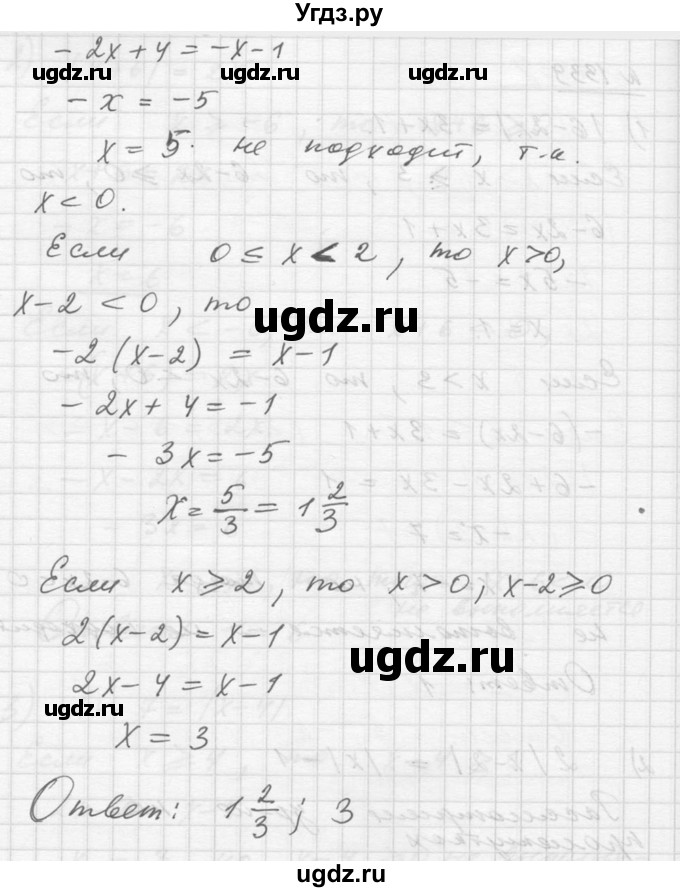 Угдз.ру
- 2x + 4 = -x - 1
- x = -5
x = 5. не подходит, т.к.
x < 0.
Если 0 ≤ x < 2, то x > 0,
x - 2 < 0, то
-2 (x - 2) = x - 1
- 2x + 4 = -1
- 3x = -5
x = 5/3 = 1 2/3
Если x ⩾ 2, то x > 0, x - 2 ⩾ 0
2(x - 2) = x - 1
2x - 4 = x - 1
x = 3
Ответ: 1 2/3; 3
ugdz.ru
ugdz.ru
ugdz.ru
ugdz.ru
ugdz.ru
ugdz.ru
ugdz.ru
ugdz.ru